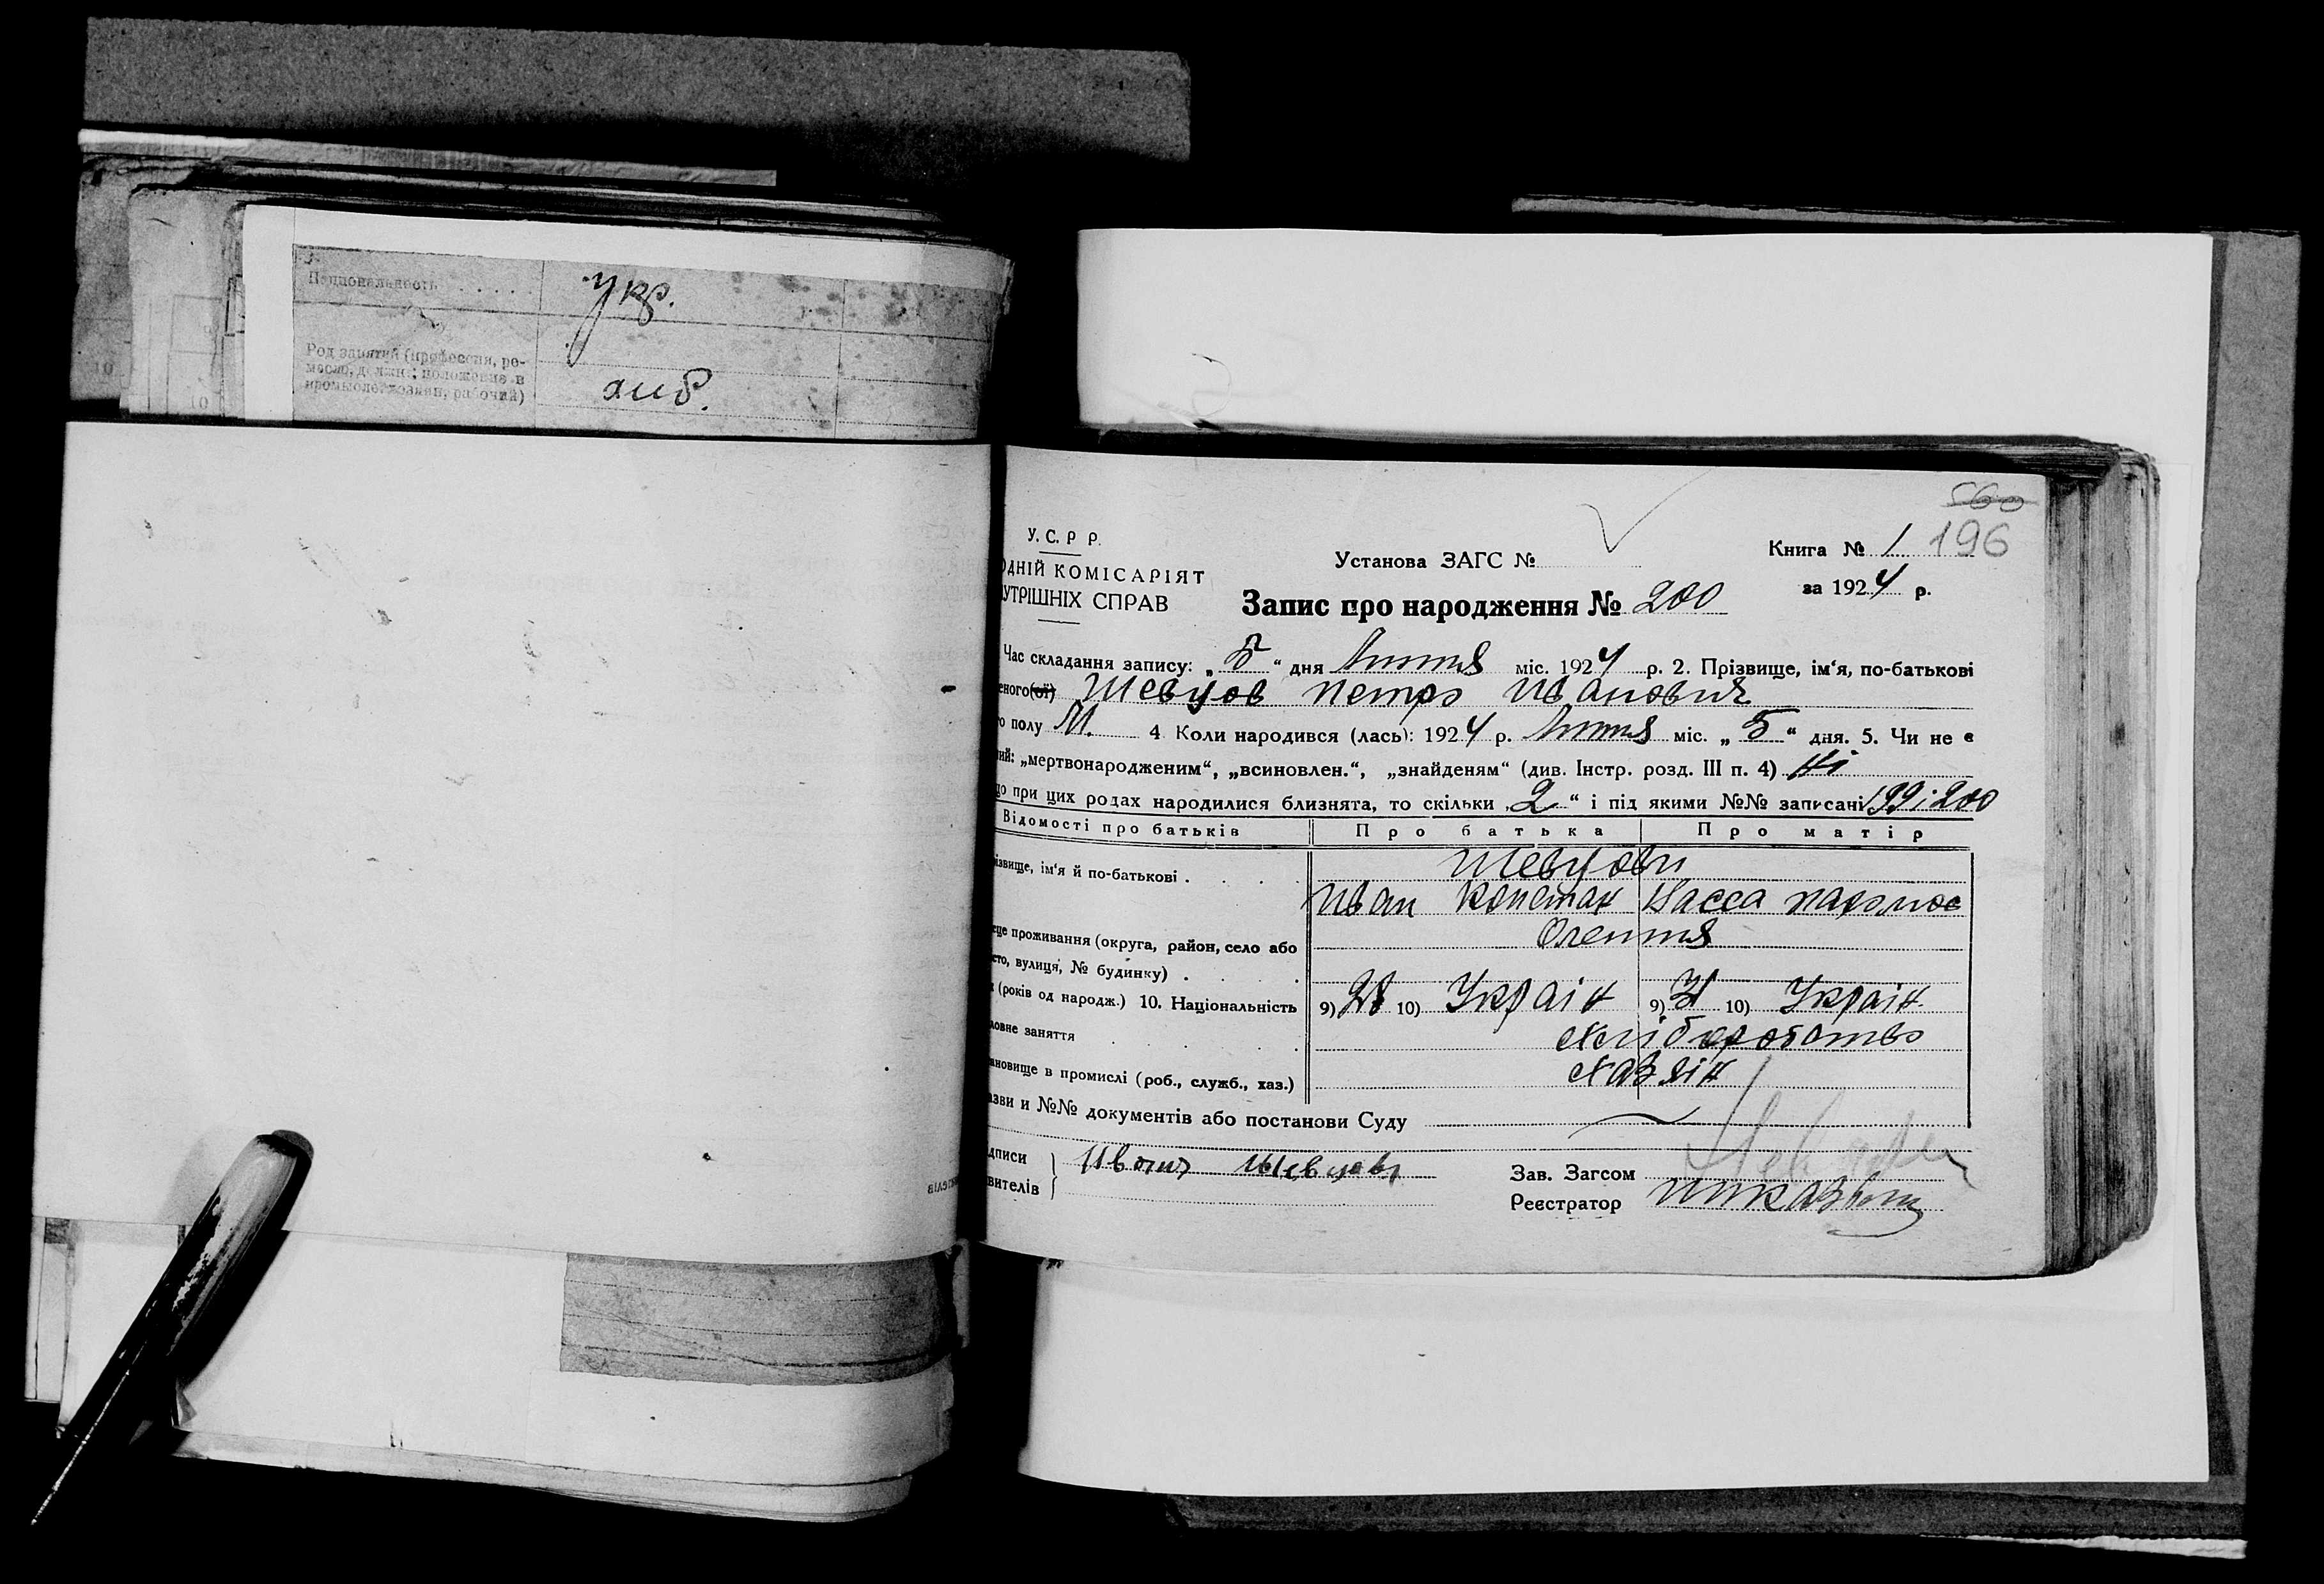 Национальность . . . . . укр.
Род занятий (профессия, ре-
месло, должн.; положение в
хлб.
560
У.С.Р.Р.
Установа ЗАГС №
Книга № 1 196
ОДНІЙ КОМІСАРІЯТ
за 1924 р.
УТРІШНІХ СПРАВ
Запис про народження № 200
Час складання запису: „5“ дня Липня міс. 1924 р. 2. Прізвище, ім‘я, по-батькові
еного(ої) Шевцов Петро Иванович
о полу М. 4. Коли народився (лась): 1924 р. Липня міс. „5“ дня. 5. Чи не є
ний: „мертвонародженим“, „всиновлен.“, „знайденям“ (див. Інстр. розд. III п. 4) Ні
що при цих родах народилися близнята, то скільки „2“ і під якими №№ записані 199 і 200
Відомості про батьків Про батька Про матір
ізвище, ім‘я й по-батькові . . . Шевцови
Иван Констан Васса
це проживання (округа, район, село або
сто, вулиця, № будинку) . .
(років од народж.) 10. Національність 9) 28 10) Украін 9) 31 10) Украін.
ловне заняття . . . хліборобство
ановище в промислі (роб., служб., хаз.) хазяін
азви и №№ документів або постанови Суду
дписи Иван Шевцовъ
вителів
Зав. Загсом
Реєстратор